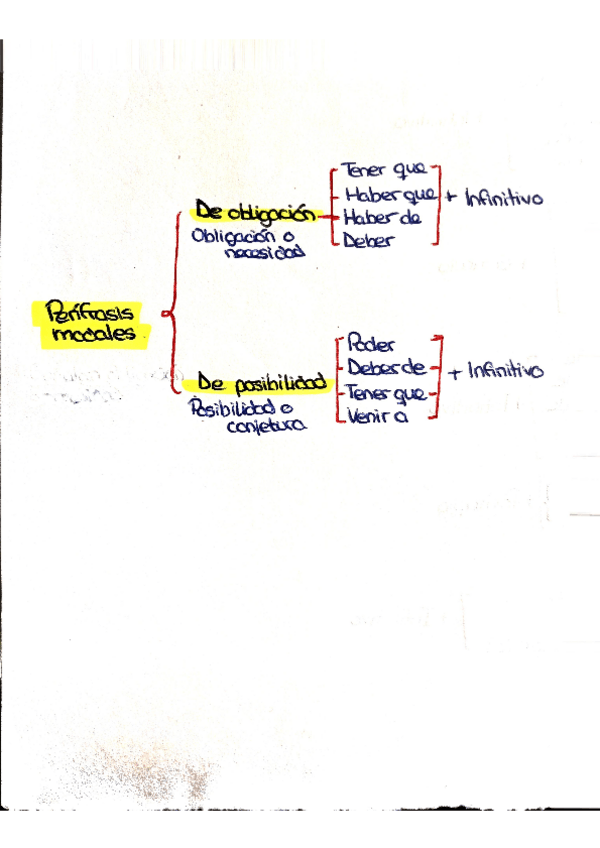 Perífrasis
modales
De obligación
Obligación o
necesidad
Tener que
Haber que
Haber de
Deber
+ Infinitivo
De posibilidad
Posibilidad o
conjetura
Poder
Deber de
Tener que
Venir a
+ Infinitivo